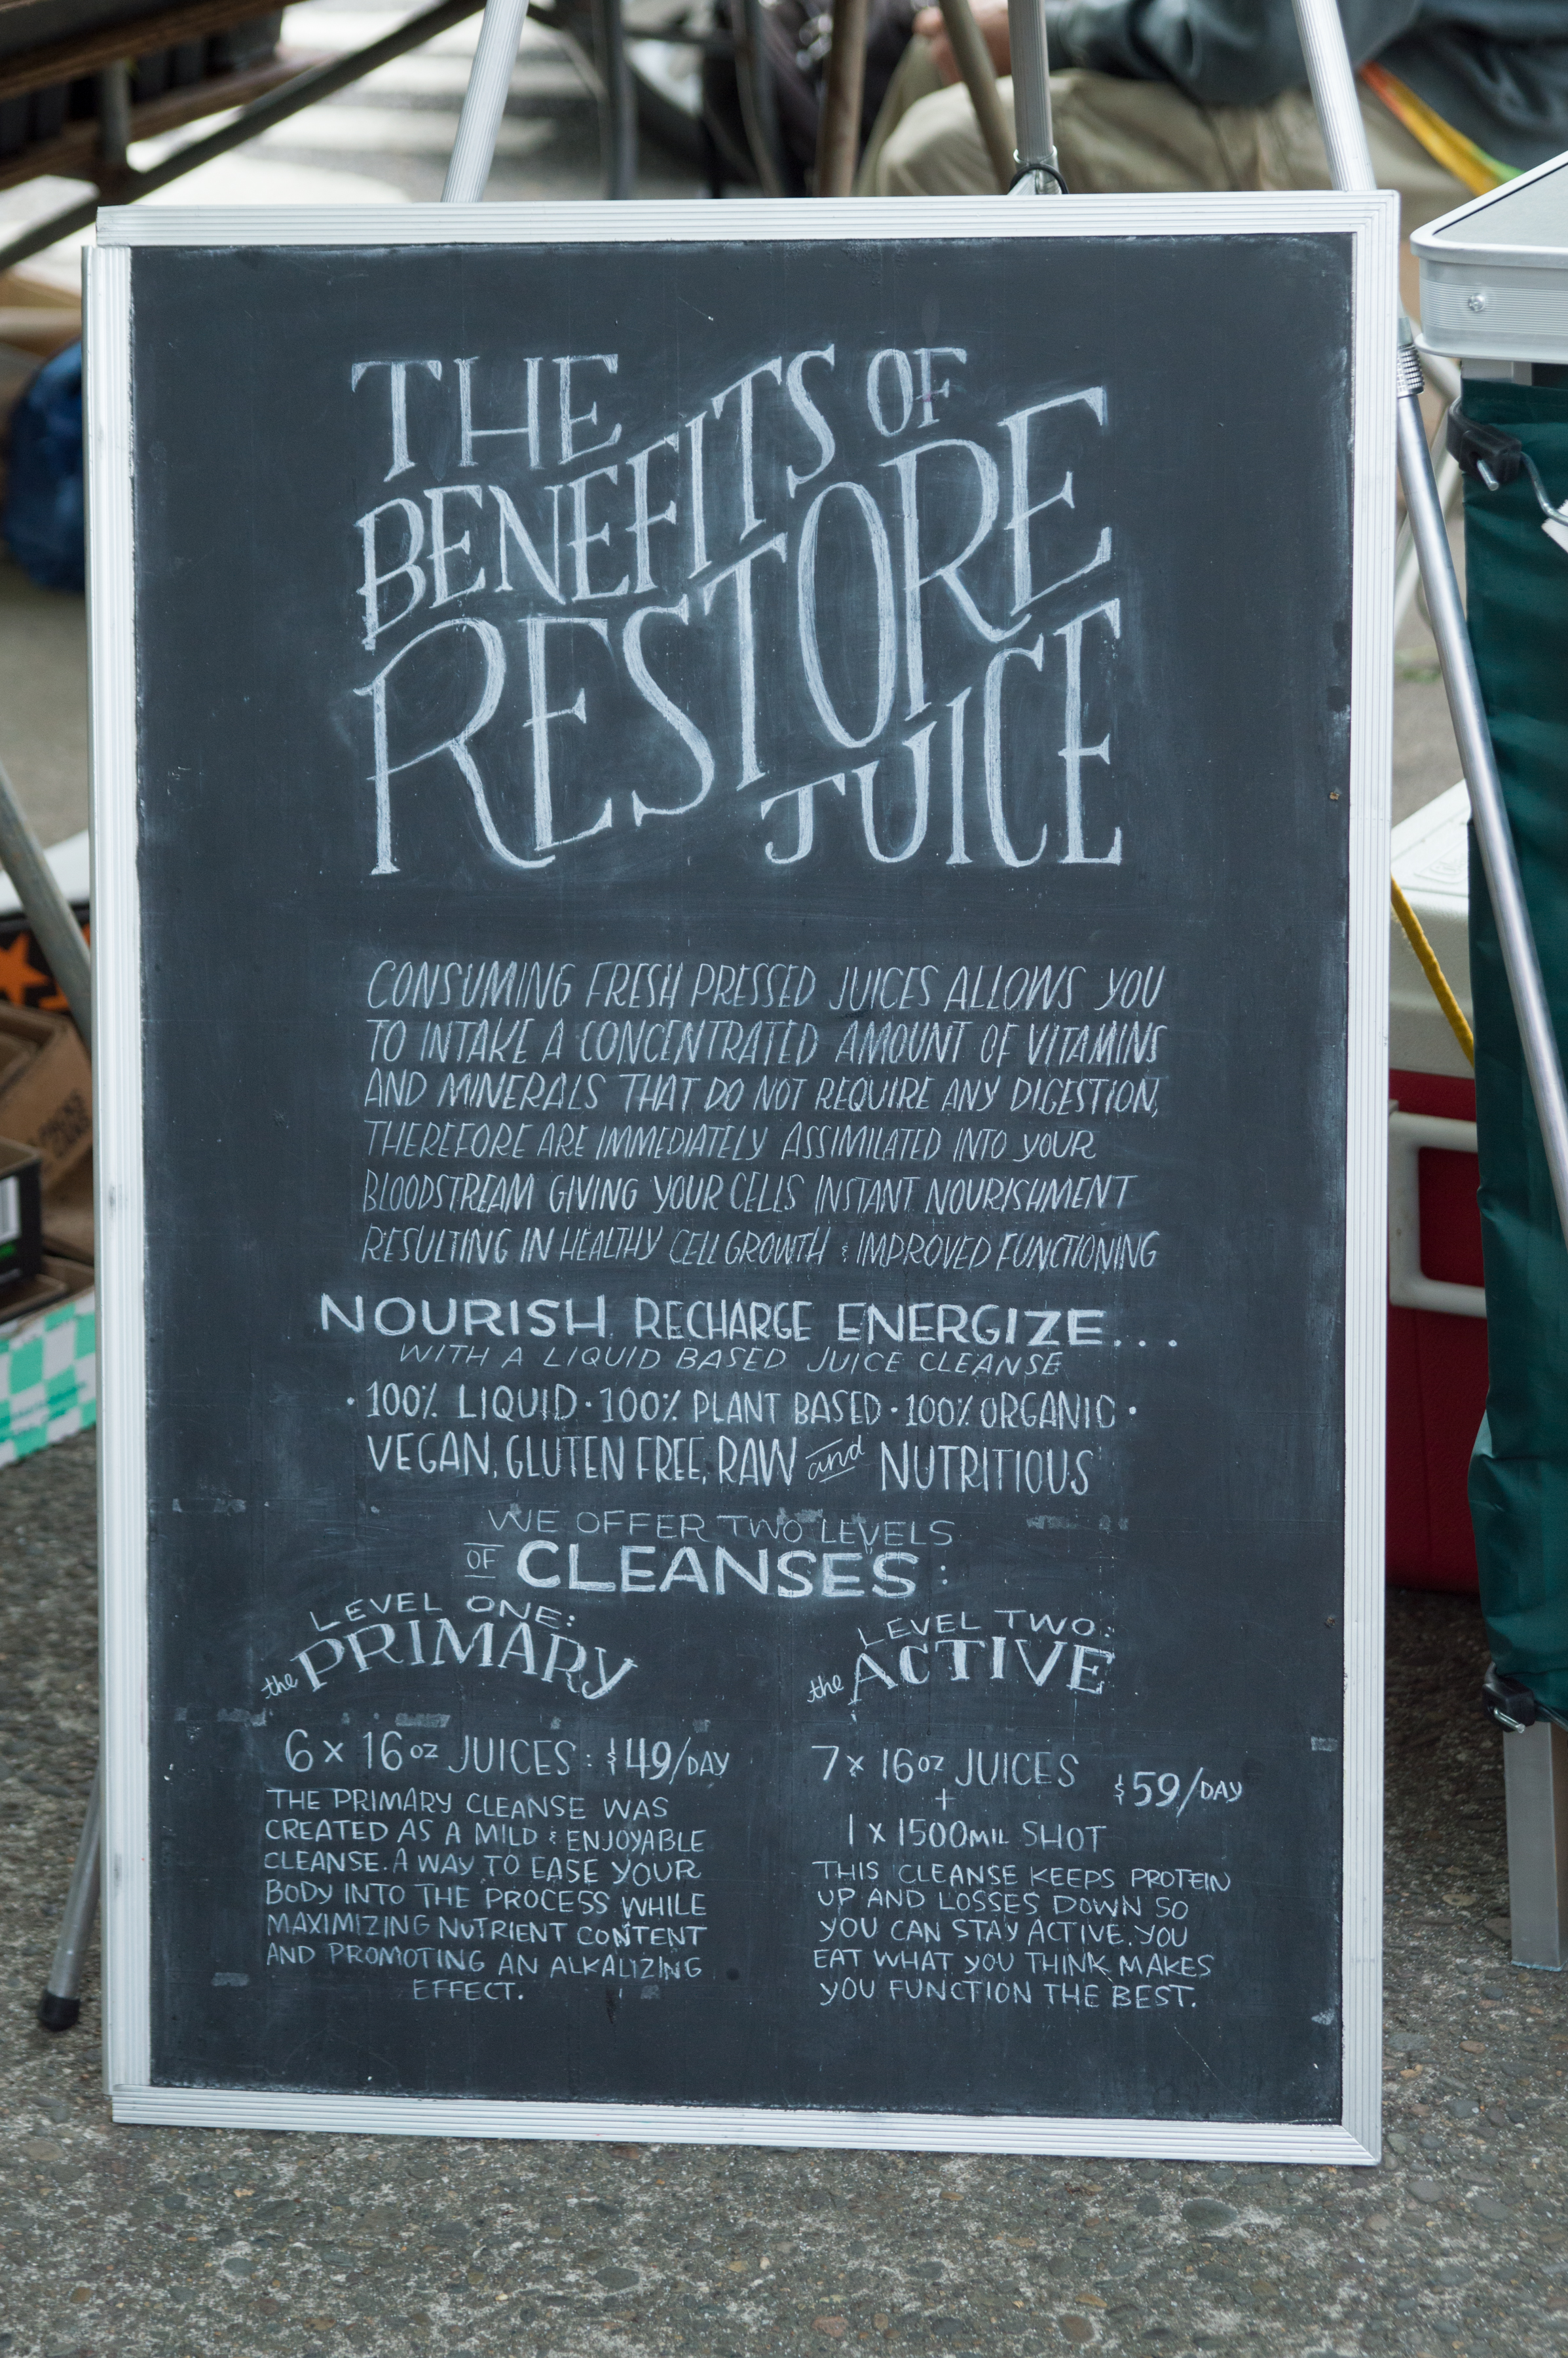 THE
BENEFITS OF
RESTORE
JUICE
CONSUMING FRESH PRESSED JUICES ALLOWS YOU
TO INTAKE A CONCENTRATED AMOUNT OF VITAMINS
AND MINERALS THAT DO NOT REQUIRE ANY DIGESTION,
THEREFORE ARE IMMEDIATELY ASSIMILATED INTO YOUR
BLOODSTREAM GIVING YOUR CELLS INSTANT NOURISHMENT
RESULTING IN HEALTHY CELL GROWTH & IMPROVED FUNCTIONING
NOURISH. RECHARGE ENERGIZE...
WITH A LIQUID BASED JUICE CLEANSE
· 100% LIQUID · 100% PLANT BASED · 100% ORGANIC ·
VEGAN, GLUTEN FREE, RAW and NUTRITIOUS
WE OFFER TWO LEVELS
OF CLEANSES:
LEVEL ONE:
the PRIMARY
6 x 16oz JUICES: $49/DAY
THE PRIMARY CLEANSE WAS
CREATED AS A MILD & ENJOYABLE
CLEANSE. A WAY TO EASE YOUR
BODY INTO THE PROCESS WHILE
MAXIMIZING NUTRIENT CONTENT
AND PROMOTING AN ALKALIZING
EFFECT.
LEVEL TWO:
the ACTIVE
7 x 16oz JUICES $59/DAY
+
1 x 1500MIL SHOT
THIS CLEANSE KEEPS PROTEIN
UP AND LOSSES DOWN SO
YOU CAN STAY ACTIVE. YOU
EAT WHAT YOU THINK MAKES
YOU FUNCTION THE BEST.